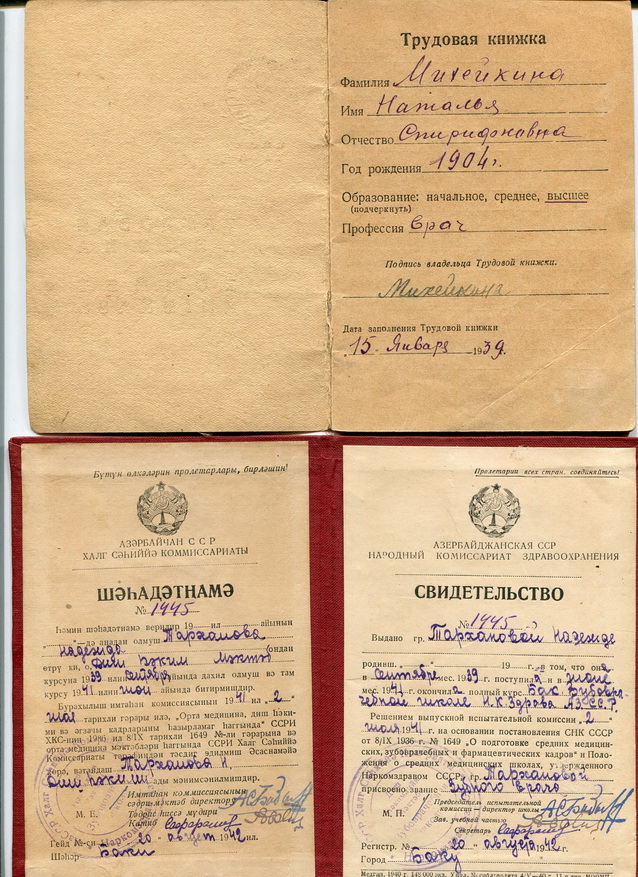 Трудовая книжка
Фамилия Михейкина
Имя Наталья
Отчество Спиридоновна
Год рождения 1904 г.
Образование: начальное, среднее, высшее
(подчеркнуть)
Профессия врач
Подпись владельца Трудовой книжки.
Михейкина
Дата заполнения Трудовой книжки
15 Января 1939.
Бүтүн өлкәләрин пролетарлары, бирләшин!
АЗӘРБАЙҸАН ССР
ХАЛГ СӘҺИЙЙӘ КОММИССАРИАТЫ
ШӘҺАДӘТНАМӘ
№ 1445
Һәмин шәһадәтнамә верилир 19 ил айынын
-дә анадан олмуш Тарханова
Надежда ондан
өтрү ки, о, Диш Һәким Мәктәб
курсуна 19 39 сентябр айында дахил олмуш вә там
курсу 19 41 июл айында битирмишдир.
Бурахылыш имтаһан комиссиясынын 19 41 ил 2
июл тарихли гәрары илә, "Орта медицина, диш һәки-
ми вә әгзачы кадрларыны һазырламаг һаггында" ССРИ
ХКС-нин 1936 ил 8/IX тарихли 1649 №-ли гәрарына вә
орта медицина мәктәбләри һаггында ССРИ Халг Сәһиййә
Комиссариаты тәрәфиндән тәсдиг әдилмиш Әсаснамәйә
көрә, вәтәндаш Тарханова Н.
Диш һәкими мәнимсәнилмишдир.
Имтаһан комиссиясынын
сәдри мәктәб директору
Тәдрис һиссә мүдири
М. Е.
Катиб
Гейд №-си 20 август 1942 ил.
Шәһәр Бакы
Пролетарии всех стран, соединяйтесь!
АЗЕРБАЙДЖАНСКАЯ ССР
НАРОДНЫЙ КОМИССАРИАТ ЗДРАВООХРАНЕНИЯ
СВИДЕТЕЛЬСТВО
№ 1445
Выдано гр. Тархановой Надежде
родивш. 19 г. в том, что она
в Сентябре мес. 1939 г. поступила и в июле
мес. 1941 г. окончила полный курс Бак. Зубовра-
чебной школе Н.К. Здрава Аз.С.С.Р.
Решением выпускной испытательной комиссии „2"
июля 1941 г. на основании постановления СНК СССР
от 8/IX 1936 г. № 1649 „О подготовке средних медицин-
ских, зубоврачебных и фармацевтических кадров" и Поло-
жения о средних медицинских школах, утвержденного
Наркомздравом СССР, гр. Тархановой
присвоено звание Зубного врача
Председатель испытательной
комиссии — директор школы
М. П. Зав. учебной частью
Секретарь
Регистр. № 20 августа 1942 г.
Город Баку